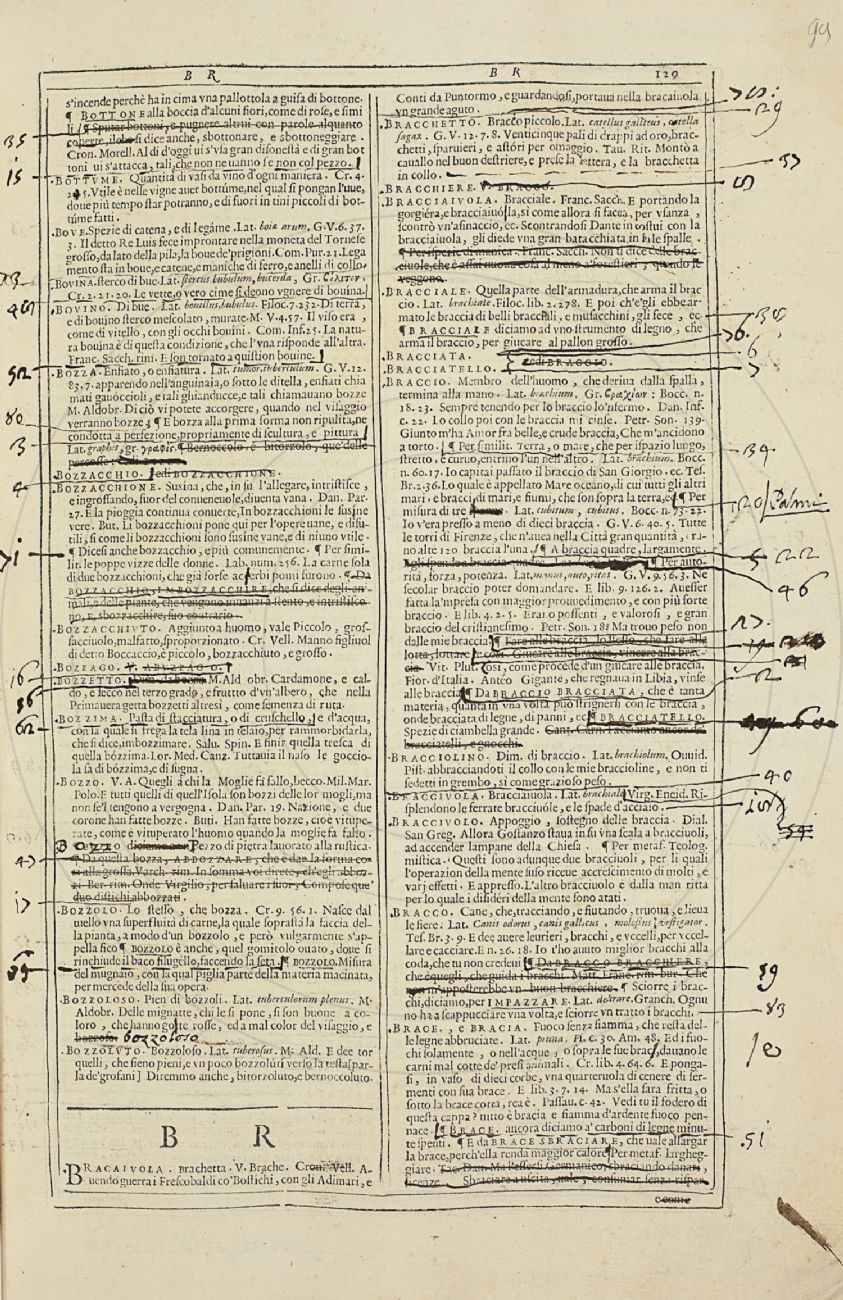 99
B R
B R 129
s'incende perchè ha in cima vna pallottola a guisa di bottone.
¶ BOTTONE alla boccia d'alcuni fiori, come di rose, e simi
li. ¶ Sputar bottoni, e pugnere altrui con parole alquanto
coperte, il che si dice anche, sbottonare, e sbottoneggiare.
Cron. Morell. Al dì d'oggi ui s'vsa gran disonestà e di gran bot
toni ui s'attacca, tali, che non ne uanno se non col pezzo.
BOTTVME. Quantità di vasi da vino d'ogni maniera. Cr. 4.
Vtile è nelle vigne auer bottúme, nel qual si pongan l'uue,
doue più tempo star potranno, e di fuori in tini piccoli di bot-
túme fatti.
BOVE. Spezie di catena, e di legáme. Lat. boia arum. G.V.6.37.
3. Il detto Re Luis fece improntare nella moneta del Tornese
grosso, da lato della pila, la boue de' prigioni. Com. Pur. 21. Lega
mento sta in boue, e catene, e maniche di ferro, e anelli di collo.
BOVINA. sterco di bue. Lat. stercus bubulum, bucerda, Gr.
Cr. 2. 21. 20. Le vette, o vero cime si deono vgnere di bouina.
BOVINO. Di bue. Lat. bouillus, bubulus. Filoc. 7.252. Di terra,
e di bouino sterco mescolato, murate. M. V. 4.57. Il viso era,
come di vitello, con gli occhi bouini. Com. Inf. 25. La natu-
ra bouina è di questa condizione, che l'vna risponde all'altra.
Franc. Sacch. rim. E son tornato a quistion bouine.
BOZZA. Enfiato, o enfiatura. Lat. tumor, tuberculum. G. V. 12.
83. 7. apparendo nell'anguinaia, o sotto le ditella, enfiati chia
mati gauoccioli, e tali ghianducce, e tali chiamauano bozze
M. Aldobr. Di ciò vi potete accorgere, quando nel visaggio
verranno bozze. ¶ E bozza alla prima forma non ripulita, ne
condotta a perfezione, propriamente di scultura, e pittura
Lat. graphis, gr. γραφίς. ¶ Bernoccolo, e bitorzolo, que' delle
percosse
BOZZACCHIO. Vedi BOZZACCHIONE.
BOZZACCHIONE. Susina, che, in su l'allegare, intristisce,
e ingrossando, fuor del conueneuole, diuenta vana. Dan. Par.
27. E la pioggia continua conuerte, In bozzacchioni le susine
vere. But. Li bozzacchioni pone qui per l'opere uane, e disu-
tili, si come li bozzacchioni sono susine vane, e di niuno vtile.
¶ Dicesi anche bozzacchio, e più comunemente. ¶ Per simi-
lit. le poppe vizze delle donne. Lab. num. 256. La carne sola
di due bozzacchioni, che già forse acerbi pomi furono. ¶ Da
BOZZACCHIO, IMBOZZACCHIRE, che si dice degli ani-
mali, e delle piante, che vengono innanzi a stento, e intristisco-
no, e, sbozzacchire, suo contrario.
BOZZACCHIVTO. Aggiunto a huomo, vale Piccolo, gros-
sacciuolo, malfatto, sproporzionato. Cr. Vell. Manno figliuol
di detto Boccaccio, è piccolo, bozzacchiuto, e grosso.
BOZZAGO. V. ABVZZAGO.
BOZZETTO. Dim. da bozza. M. Ald obr. Cardamone, e cal-
do, e secco nel terzo grado, e frutto d'vn'albero, che nella
Primauera getta bozzetti altresì, come semenza di ruta.
BOZZIMA. Pasta di stacciatura, o di cruschello, e d'acqua,
con la quale si frega la tela lina in telaio, per rammorbidarla,
che si dice, imbozzimare. Salu. Spin. E finir quella tresca di
quella bózzima. Lor. Med. Canz. Tuttauia il naso le goccio-
la sà di bózzima, e di sugna.
BOZZO. V. A. Quegli à chi la Moglie fà fallo, becco. Mil. Mar.
Polo. E tutti quelli di quell'Isola son bozzi delle lor mogli, ma
non se'l tengono a vergogna. Dan. Par. 19. Nazione, e due
corone han fatte bozze. Buti. Han fatte bozze, cioè vitupe-
rate, come è vituperato l'huomo quando la moglie fà fallo.
BOZZO diciamo a un Pezzo di pietra lauorato alla rustica.
¶ Da questa bozza, ABBOZZARE, che è dar la forma co-
sì alla grossa. Varch. rim. In somma voi direte, ch'egli abboz-
zi Ber. rim. Onde Virgilio, per saluare i suoi, Compose que'
duo distichi abbozzati.
BOZZOLO. Lo stesso, che bozza. Cr. 9. 56. 1. Nasce dal
uello vna superfluità di carne, la quale soprastà la faccia del-
la pianta, a modo d'un bozzolo, e però vulgarmente s'ap-
pella fico ¶ BOZZOLO è anche, quel gomitolo ouato, doue si
rinchiude il baco filugello, facendo la seta. ¶ BOZZOLO. Misura
del mugnaio, con la qual piglia parte della materia macinata,
per mercede della sua opera.
BOZZOLOSO. Pien di bozzoli. Lat. tuberculorum plenus. M.
Aldobr. Delle mignatte, chi le si pone, si son buone a co-
loro, che hanno gote rosse, ed a mal color del visaggio, e
bozzoso. bozzoloso
BOZZOLVTO. Bozzoloso. Lat. tuberosus. M. Ald. E dee tor
quelli, che sieno pieni, e vn poco bozzoluti verso la testa, spar-
la de' grosani] Diremmo anche, bitorzoluto, e bernoccoluto.
B R
BRACAIVOLA. Brachetta. V. Brache. Cron. Vell. A-
uendo guerra i Frescobaldi co' Bostichi, con gli Adimari, e
Conti da Puntormo, e guardandosi, portaua nella bracaiuola
vn grande aguto.
BRACCHETTO. Bracco piccolo. Lat. catellus gallicus, catella
sagax. G. V. 12. 7. 8. Venticinque pali di drappi ad oro, brac-
chetti, sparuieri, e astóri per omaggio. Tau. Rit. Montò a
cauallo nel buon destriere, e prese la lettera, e la bracchetta
in collo.
BRACCHIERE. V. BRAGO.
BRACCIAIVOLA. Bracciale. Franc. Sacch. E portando la
gorgiéra, e bracciaiuóla, sì come allora si facea, per vsanza,
scontrò vn'asinaccio, ec. Scontrandosi Dante in costui con la
bracciaiuola, gli diede vna gran batacchiata in su le spalle.
¶ Per isperie di manica. Franc. Sacch. Non ti dice delle brac-
ciuole, che è assai nuoua cosa al meno a forestieri, quando le
veggono.
BRACCIALE. Quella parte dell'armadura, che arma il brac
cio. Lat. brachiale. Filoc. lib. 2. 278. E poi ch'e'gli ebbe ar-
mato le braccia di belli bracciali, e musacchini, gli fece, ec.
¶ BRACCIALE diciamo ad vno strumento di legno, che
arma il braccio, per giucare al pallon grosso.
BRACCIATA.
BRACCIATELLO. vedi BRACCIO.
BRACCIO. Membro dell'huomo, che deriua dalla spalla,
termina alla mano. Lat. brachium, Gr. βραχίων: Bocc. n.
18. 23. Sempre tenendo per lo braccio lo'nfermo. Dan. Inf.
c. 22. Lo collo poi con le braccia mi cinse. Petr. Son. 139.
Giunto m'ha Amor fra belle, e crude braccia, Che m'ancidono
a torto. ¶ Per similit. Terra, o mare, che per ispazio lungo,
stretto, e curuo, entri no l'un nell'altro. Lat. brachium. Bocc.
n. 60. 17. Io capitai passato il braccio di San Giorgio. ec. Tes.
Br. 2. 36. Lo quale è appellato Mare oceano, di cui tutti gli altri
mari, e bracci, di mari, e fiumi, che son sopra la terra, e ¶ Per
misura di tre palmi. Lat. cubitum, cubitus. Bocc. n. 73. 22.
Io v'era presso a meno di dieci braccia. G. V. 6. 40. 5. Tutte
le torri di Firenze, che n'auea nella Città gran quantità, era-
no alte 120 braccia l'una. ¶ A braccia quadre, largamente.
¶ Per auto-
rità, forza, potenza. Lat. manus, autoritas. G. V. 9. 56. 3. Ne
secolar braccio poter domandare. E lib. 9. 126. 2. Auesser
fatta la'mpresa con maggior prouuedimento, e con più forte
braccio. E lib. 4. 2. 5. Erano possenti, e valorosi, e gran
braccio del cristianesimo. Petr. Son. 188 Ma trouo peso non
dalle mie braccia ¶ Fare alle braccia, lo stesso, che fare alla
lotta, lottare, e con. Giucare alle braccia, vincere alla brac-
cia. Vit. Plut. Così, come procede d'un giucare alle braccia,
Fior. d'Italia. Anteo Gigante, che regnaua in Libia, vinse
alle braccia ¶ Da BRACCIO BRACCIATA, che è tanta
materia, quanta in vna volta può strignersi con le braccia,
onde bracciata di legne, di panni, ec ¶ BRACCIATELLO.
Spezie di ciambella grande. Cant. Carn. Facciamo ancor de'
bracciatelli, e gnocchi.
BRACCIOLINO. Dim. di braccio. Lat. brachiolum. Ouuid.
Pist. abbracciandoti il collo con le mie braccioline, e non ti
sedetti in grembo, sì come grazioso peso.
BRACCIVOLA. Bracciaiuola. Lat. brachiale Virg. Eneid. Ri-
splendono le ferrate bracciuóle, e le spade d'acciaio.
BRACCIVOLO. Appoggio, sostegno delle braccia. Dial.
San Greg. Allora Gostanzo staua in su vna scala a bracciuoli,
ad accender lampane della Chiesa. ¶ Per metaf. Teolog.
mistica. Questi sono adunque due bracciuoli, per li quali
l'operazion della mente suso riccue accrescimento di molti, e
varj effetti. E appresso. L'altro bracciuolo è dalla man ritta
per lo quale i disidéri della mente sono atati.
BRACCO. Cane, che, tracciando, e fiutando, truoua, e lieua
le fiere. Lat. Canis odorus, canis gallicus, molossus, vestigator.
Tes. Br. 3. 9. E dee auere leurieri, bracchi, e vccelli, per vccel-
lare e cacciare. E n. 26. 18. Io t'ho auuto miglior bracchi alla
coda, che tu non credeui ¶ Da BRACCO BRACCHIERE,
che è quegli, che guida i bracchi. Matt. Franc. rim. bur. Che
non m'apposterebbe vn buon bracchiere. ¶ Sciorre i brac-
chi, diciamo, per IMPAZZARE. Lat. delirare. Granch. Ognu
no ha a scappucciare vna volta, e sciorre vn tratto i bracchi.
BRACE, e BRACIA. Fuoco senza fiamma, che resta del-
le legne abbruciate. Lat. pruna. Fi. c. 30. Am. 48. Ed i fuo-
chi solamente, o nell'acque, o sopra le sue brac, dauano le
carni mal cotte de' presi animali. Cr. lib. 4. 64. 6. E ponga-
si, in vaso di dieci corbe, vna quarteruola di cenere di ser-
menti con sua brace. E lib. 3. 7. 14. Ma s'ella sarà fritta, o
sotto la brace cotta, rea è. Passau. c. 42. Vedi tu il fodero di
questa cappa? tutto è bracia e fiamma d'ardente fuoco pen-
nace. ¶ BRACE. ancora diciamo a' carboni di legne minu-
te spenti. ¶ E da BRACE SBRACIARE, che uale allargar
la brace, perch'ella renda maggior calore ¶ Per metaf. largheg-
giare. Tac. Dan. Ma l'essersi Germanico, sbraciando danari,
licenze. Sbraciare a uscita, uale, consumar senza rispar-
e come
35
15
40
52
80
3
4
16
36
62
29
6
39
20/Palmi
22
5
46
2
40
59
83
10
51